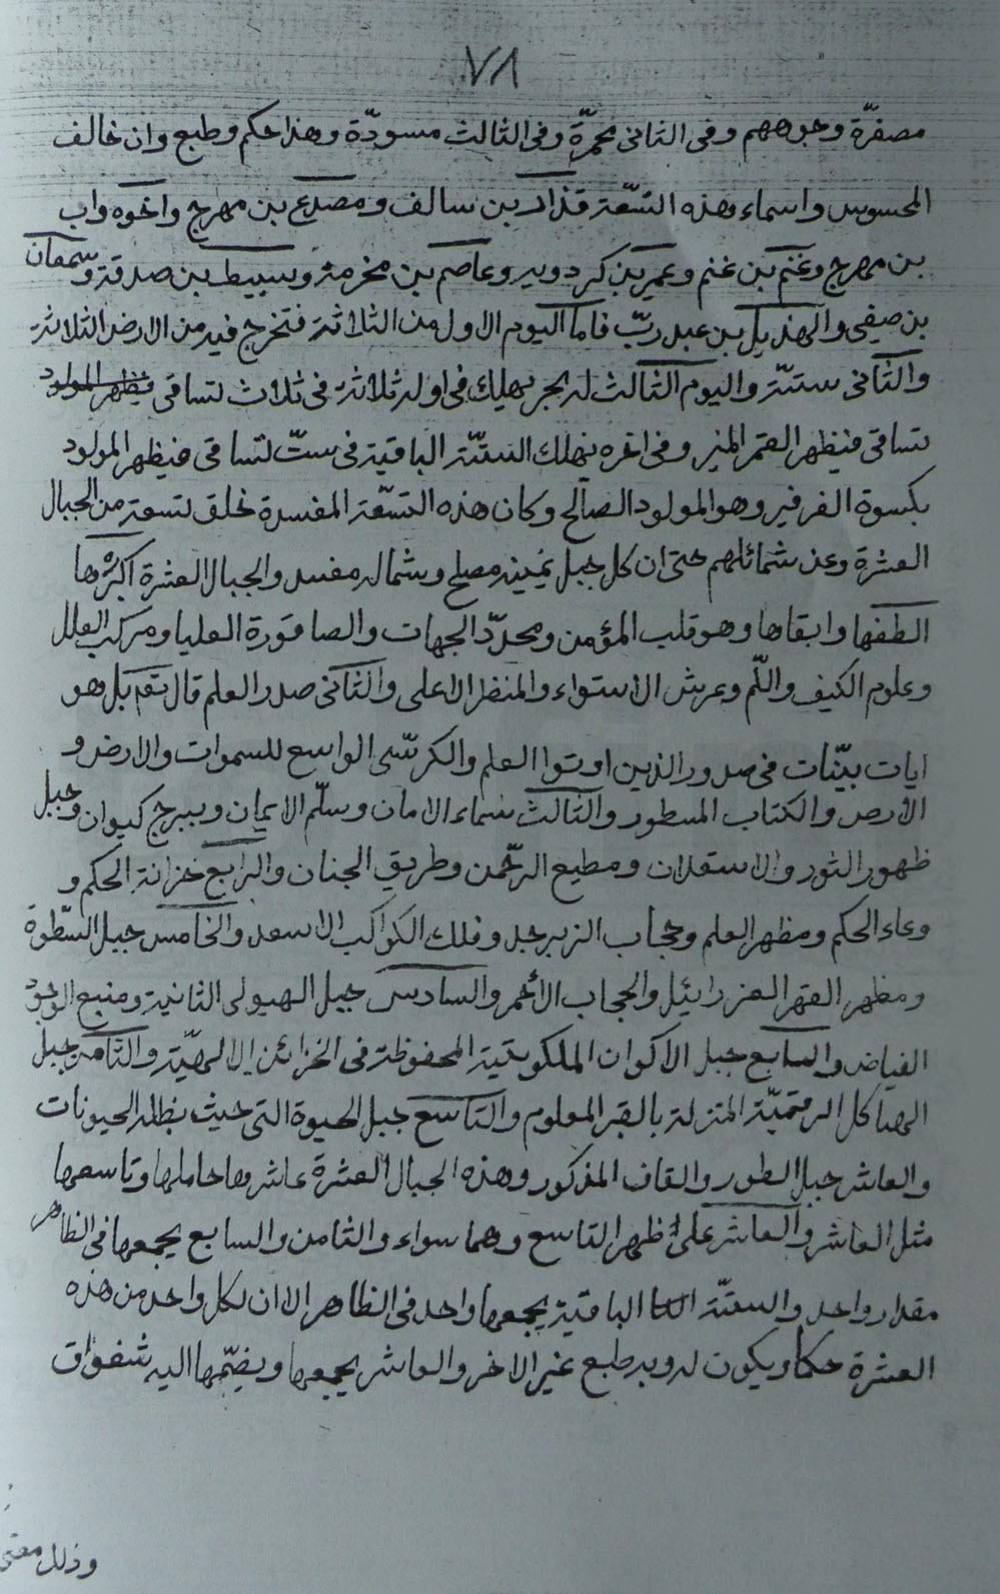 ٧٨
مصفرّة وجوههم وفى الثانى محمرّة وفى الثالث مسودّة وهذا حكم وطبع وان خالف
المحسوس واسماء هذه التسّعة قذار بن سالف ومصدع بن مهرج واخوه واب
بن مهرج وغنم بن غنم وعمير بن كردويه وعاصم بن مخرمة وسبيط بن صدقة وسمعان
بن صيفى والهذيل بن عبد ربّ فاما اليوم الاول من الثلاثة فتخرج فيه من الارض الثلاثة
والثانى ستّة واليوم الثالث لم يجر نهلك فى اوله ثلاثة فى ثلاث لتساقى فيظهر المولود
تساقى فيظهر القمر المنير وفى اخره يهلك الستّة الباقية فى ستّ لتساقى فيظهر المولود
بكسوة الفرفير وهو المولود الصالح وكان هذه التسّعة المفسدة خلق لتسعة من الجبال
العشرة وعن شمائلهم حتى ان كل جبل يمينه مصلح وشماله مفسد والجبال العشرة اكبرها
الطفها وابقاها وهو قلب المؤمن ومحدّد الجهات والصاقورة العليا ومركب العلل
وعلوم الكيف واللّم وعرش الاستواء والمنظر الاعلى والثانى صدر العلم قال تعم بل هو
ايات بيّنات فى صدور الذين اوتوا العلم والكرسّى الواسع للسموات والارض و
الأرض والكتاب المسطور والثالث سماء الامان وسلّم الايمان وبرج كيوان وجبل
ظهور الثور والاستعلان ومطيع الرحّمن وطريق الجنان والرابع خزانة الحكم و
وعاء الحكم ومظهر العلم وحجاب الزبرجد وفلك الكواكب الاسعد والخامس جبل السّطوة
ومظهر القهر العزرائيل والحجاب الأحمر والسادس جبل الهيولى الثانية ومنبع الوجود
الفياض والسابع جبل الاكوان الملكويتية المحفوظة فى الخزائن الالهيّة والثامن جبل
الهياكل الرقميّة المنزلة بالقدر المعلوم والتاسع جبل الحيوة التى حيث بظله الحيونات
والعاشر جبل الطور والقاف المذكور وهذه الجبال العشرة عاشرها حاملها وتاسعها
مثل العاشر والعاشر على ظهر التاسع وهما سواء والثامن والسابع يجمعها فى الظاهر
مقدار واحد والستّة الباقية يجمعها واحد فى الظاهر الا ان لكل واحد من هذه
العشرة حكما ويكون له وبه طبع غير الاخر والعاشر يجمعها ويضمّها اليه
وذلك معنى